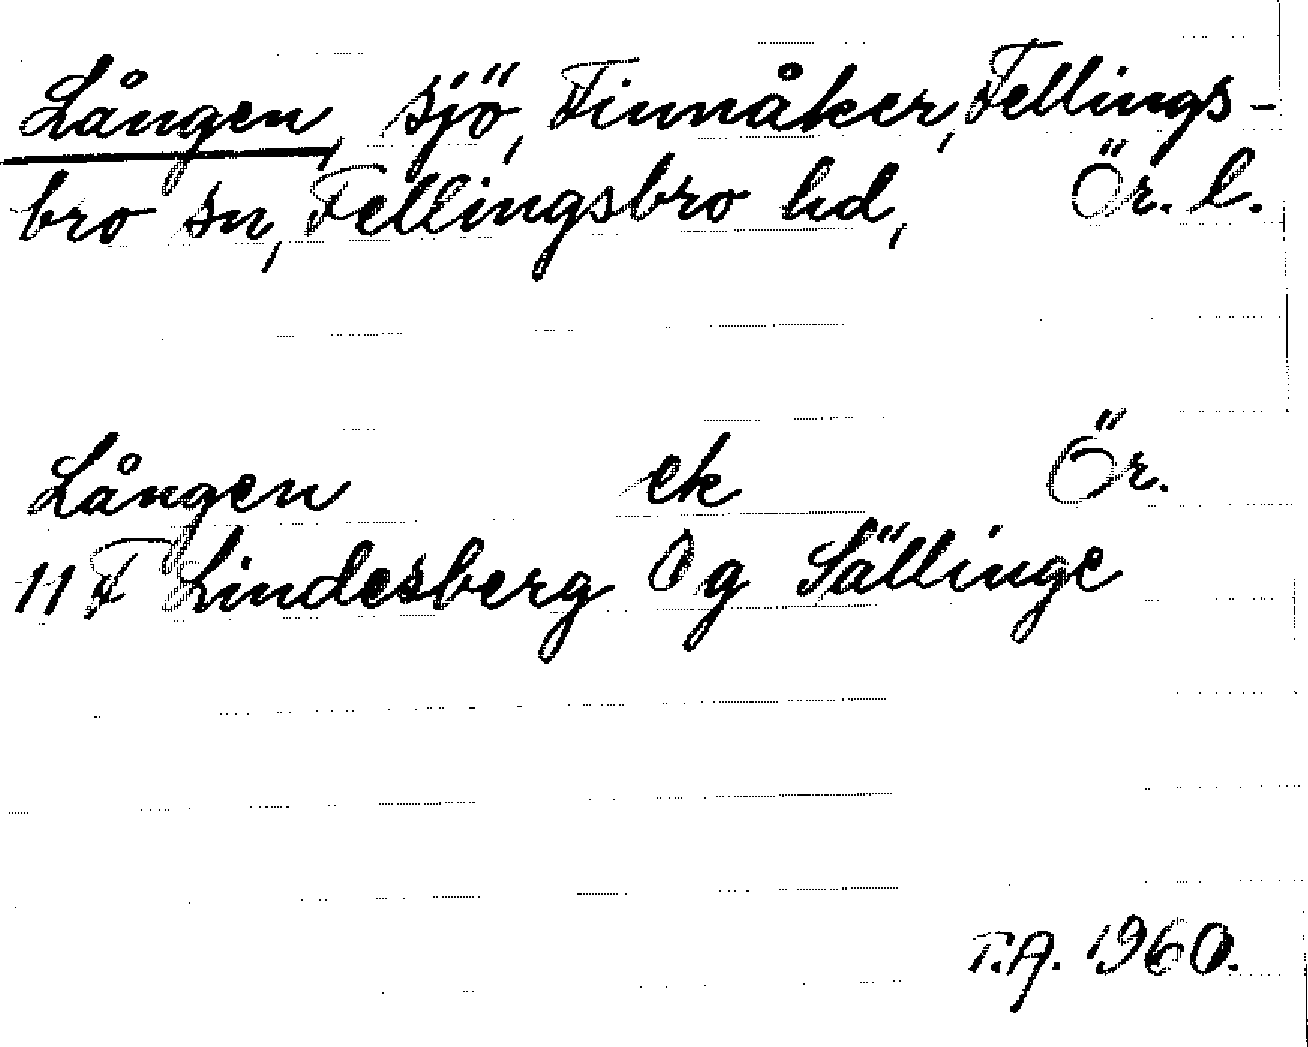 Lången, sjö, Finnåker, Fellings-
bro sn, Fellingsbro hd, Ör. l.
Lången ek Ör.
11 F Lindesberg 0 g Sällinge
T.A. 1960.